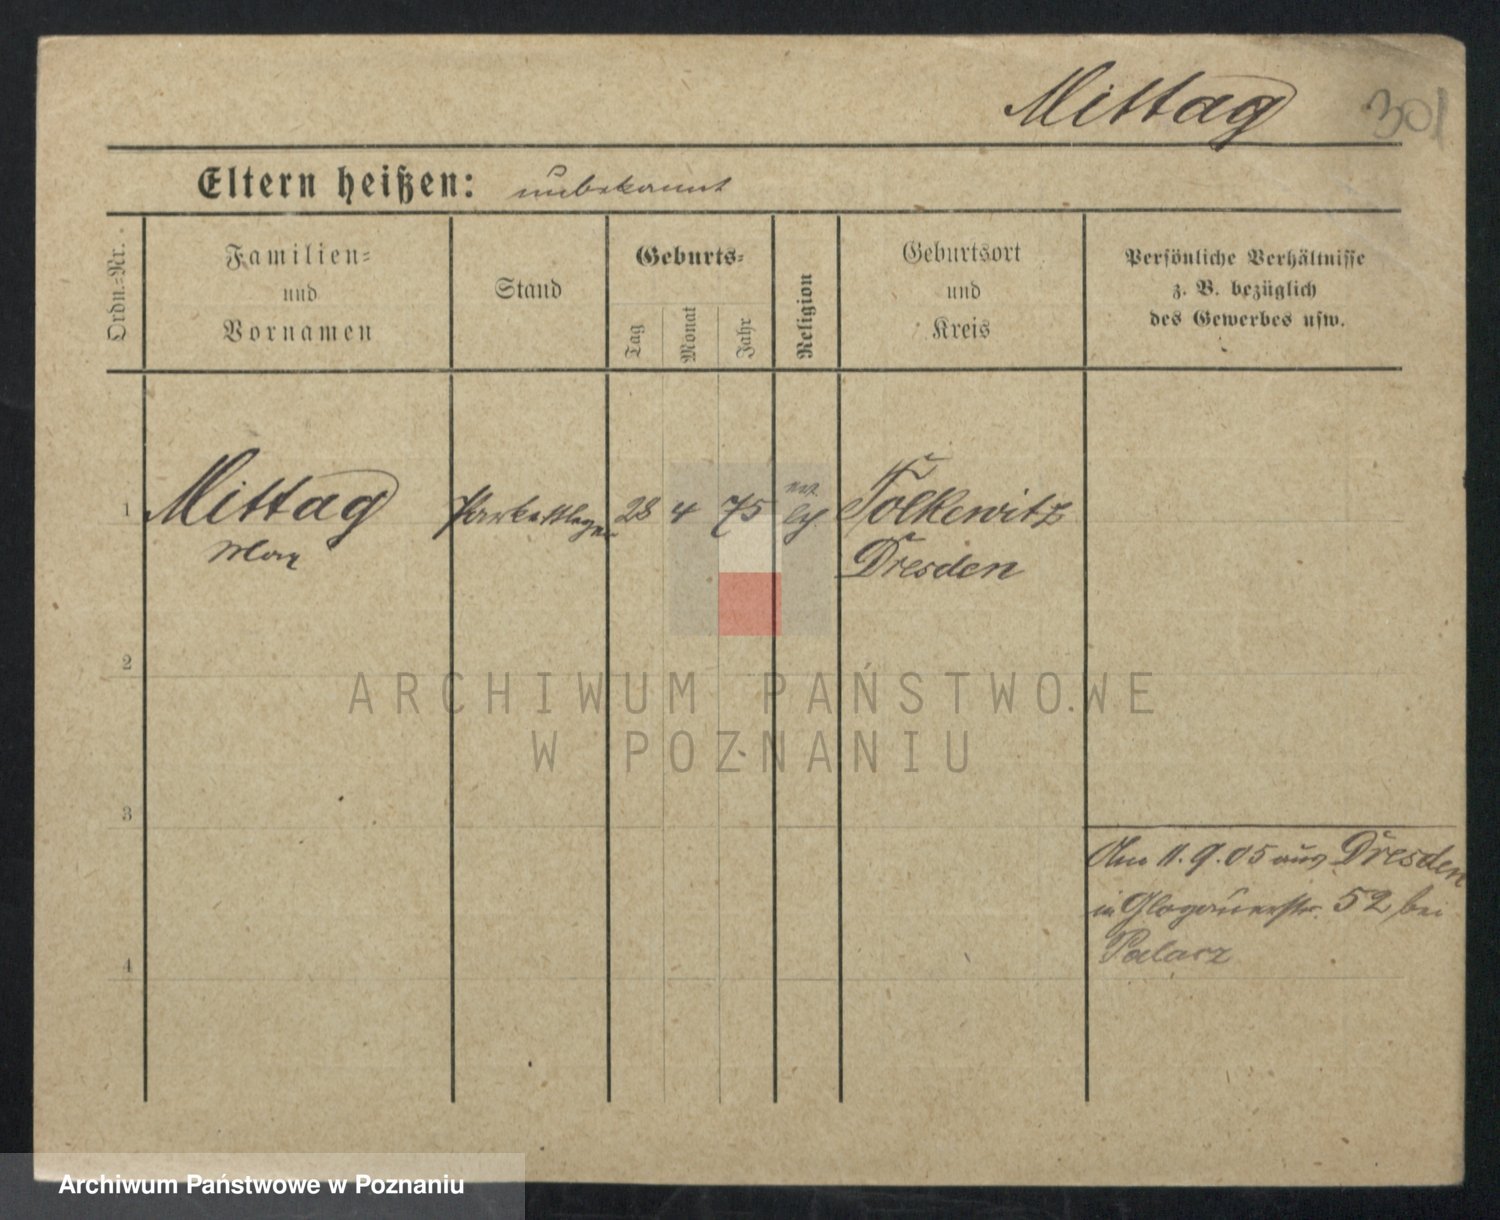 Mittag 301
Eltern heißen: unbekannt
Ordn.=Nr.
Familien=
und
Vornamen
Stand
Geburts=
Tag
Monat
Jahr
Religion
Geburtsort
und
Kreis
Persönliche Verhältnisse
z. B. bezüglich
des Gewerbes usw.
1 Mittag Parkettleger 28 4 75 Tolkewitz
Max Dresden
2
3
Am 11.9.05 aus Dresden
in Glogauerstr. 52 bei
Palacz
4
ARCHIWUM PAŃSTWOWE
W POZNANIU
Archiwum Państwowe w Poznaniu